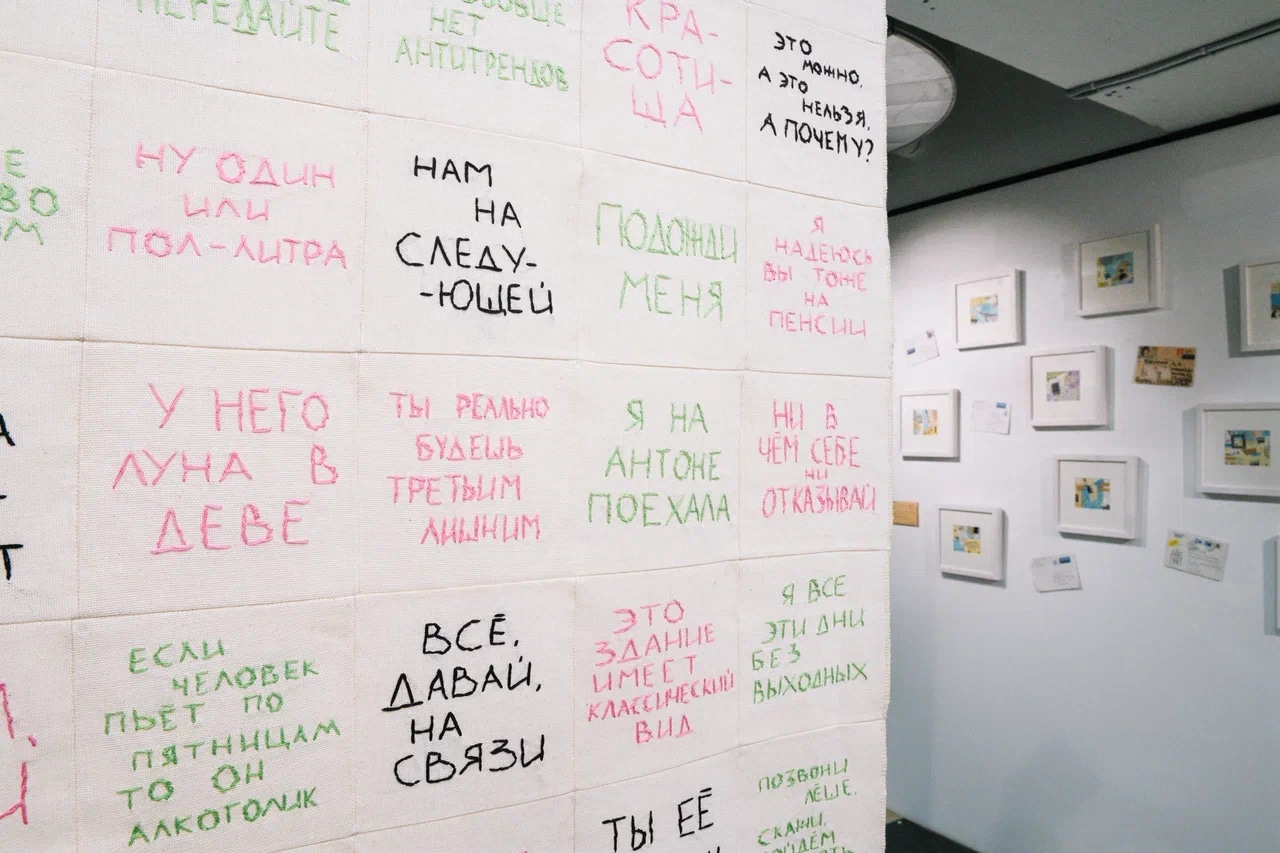 ПЕРЕДАЙТЕ
НЕТ
АНТИТРЕНДОВ
КРА-
СОТИ-
ЩА
ЭТО
МОЖНО,
А ЭТО
НЕЛЬЗЯ,
А ПОЧЕМУ?
НУ ОДИН
ИЛИ
ПОЛ-ЛИТРА
НАМ
НА
СЛЕДУ-
-ЮЩЕЙ
ПОДОЖДИ
МЕНЯ
Я
НАДЕЮСЬ
ВЫ ТОЖЕ
НА
ПЕНСИИ
У НЕГО
ЛУНА В
ДЕВЕ
ТЫ РЕАЛЬНО
БУДЕШЬ
ТРЕТЬИМ
ЛИШНИМ
Я НА
АНТОНЕ
ПОЕХАЛА
НИ В
ЧЁМ СЕБЕ
НИ
ОТКАЗЫВАЙ
ЕСЛИ
ЧЕЛОВЕК
ПЬЁТ ПО
ПЯТНИЦАМ
ТО ОН
АЛКОГОЛИК
ВСЁ,
ДАВАЙ,
НА
СВЯЗИ
ЭТО
ЗДАНИЕ
ИМЕЕТ
КЛАССИЧЕСКИЙ
ВИД
Я ВСЕ
ЭТИ ДНИ
БЕЗ
ВЫХОДНЫХ
ТЫ ЕЁ
ПОЗВОНИ
ЛЁШЕ,
СКАЖИ,